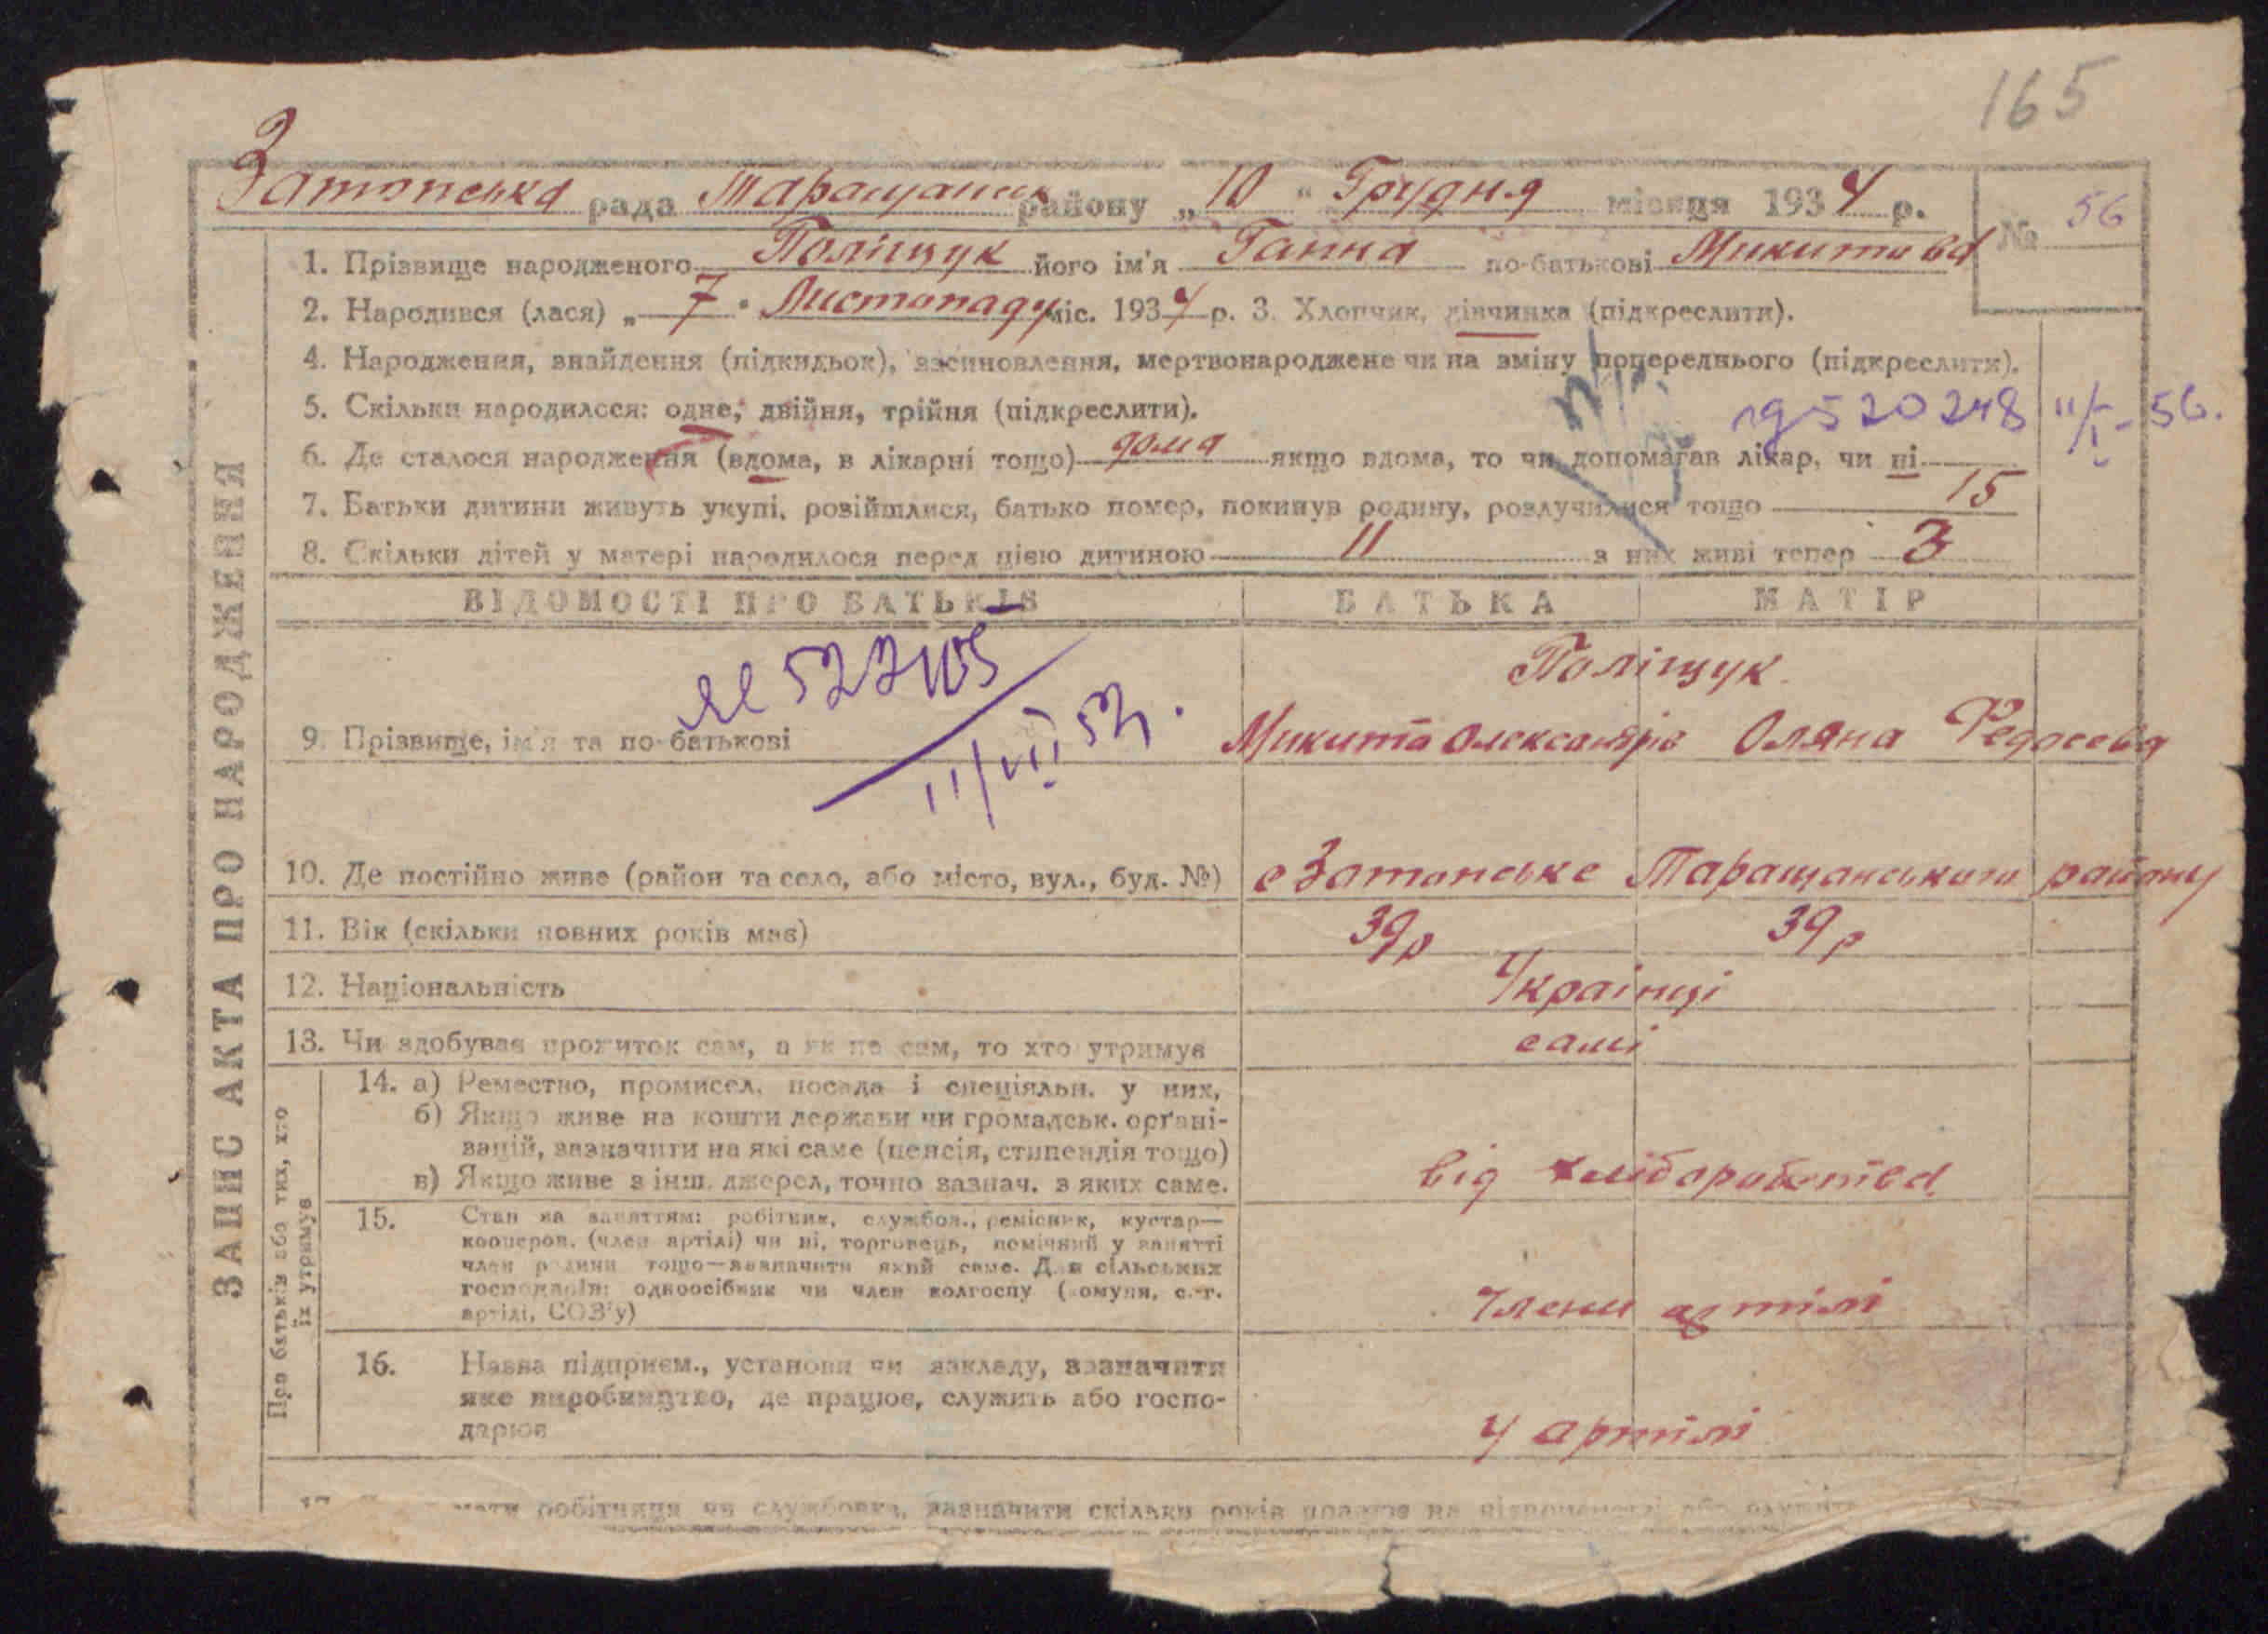 165
Затонська рада Таращанськ району „10" Грудня місяця 1934 р.
№ 56
1. Прізвище народженого Поліщук його ім'я Ганна по-батькові Микитова
2. Народився (лася) „7" Листопаду міс. 1934 р. 3. Хлопчик, дівчинка (підкреслити).
4. Народження, знайдення (підкидьок), всиновлення, мертвонароджене чи на зміну попереднього (підкреслити).
5. Скільки народилося: одне, двійня, трійня (підкреслити).
520248 11/I-56.
6. Де сталося народження (вдома, в лікарні тощо) дома якщо вдома, то чи допомагав лікар, чи ні
7. Батьки дитини живуть укупі, розійшлися, батько помер, покинув родину, розлучилися тощо 15
8. Скільки дітей у матері народилося перед цією дитиною 11 з них живі тепер 3
ВІДОМОСТІ ПРО БАТЬКІВ БАТЬКА МАТІР
Поліщук
9. Прізвище, ім'я та по-батькові Микита Олександрів Оляна Федосєєва
11/VII 52.
10. Де постійно живе (район та село, або місто, вул., буд. №) с Затонське Таращанського району
11. Вік (скільки повних років має) 39р 39р
12. Національність Українці
13. Чи здобуває прожиток сам, а як не сам, то хто утримує самі
ЗАПИС АКТА ПРО НАРОДЖЕННЯ
Про батьків або тих, хто
їх утримує
14. а) Ремество, промисел, посада і спеціяльн. у них,
б) Якщо живе на кошти держави чи громадськ. орґані-
зацій, зазначити на які саме (пенсія, стипендія тощо)
в) Якщо живе з інш. джерел, точно зазнач. з яких саме.
від хліборобства
15. Стан за заняттям: робітник, службов., ремісник, кустар—
кооперов. (член артілі) чи ні, торговець, помічний у занятті
член родини тощо—зазначити який саме. Для сільських
господарів: одноосібник чи член колгоспу (комуни, с.-г.
артілі, СОЗ'у)
Члени артілі
16. Назва підприєм., установи чи закладу, зазначити
яке виробництво, де працює, служить або госпо-
дарює
у артілі
мати робітниця чи службовка, зазначити скільки років працює на